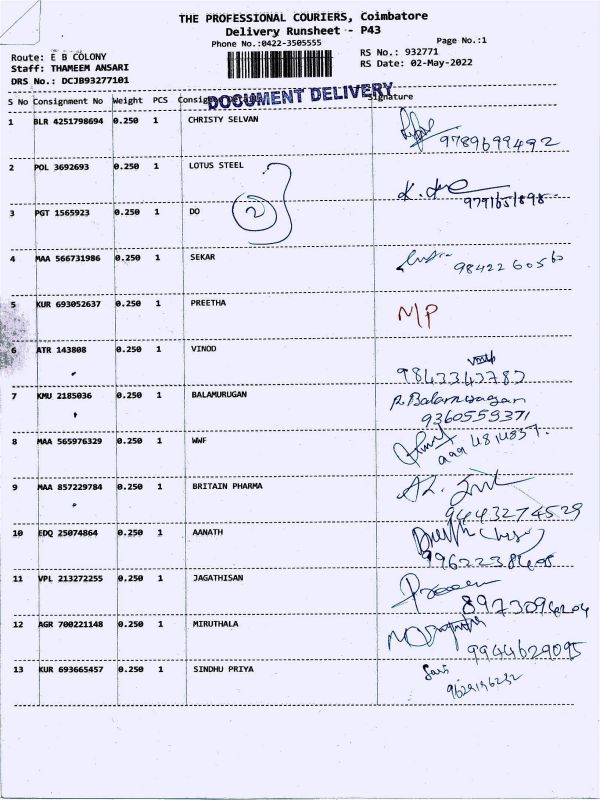 THE PROFESSIONAL COURIERS, Coimbatore
Delivery Runsheet - P43
Phone No.:0422-3505555
Page No.:1
Route: E B COLONY
RS No.: 932771
Staff: THAMEEM ANSARI
RS Date: 02-May-2022
DRS No.: DCJB93277101
DOCUMENT DELIVERY
S No Consignment No Weight PCS Signature
1 BLR 4251798694 0.250 1 CHRISTY SELVAN 9789699492
2 POL 3692693 0.250 1 LOTUS STEEL
2
3 PGT 1565923 0.250 1 DO
4 MAA 566731986 0.250 1 SEKAR 9842260560
5 KUR 693052637 0.250 1 PREETHA M/P
6 ATR 143808 0.250 1 VINOD
7 KMU 2185036 0.250 1 BALAMURUGAN R. Balamurugan
9360559371
8 MAA 565976329 0.250 1 WWF
9 MAA 857229784 0.250 1 BRITAIN PHARMA
9443274529
10 EDQ 25074864 0.250 1 AANATH
11 VPL 213272255 0.250 1 JAGATHISAN
12 AGR 700221148 0.250 1 MIRUTHALA
9944629095
13 KUR 693665457 0.250 1 SINDHU PRIYA